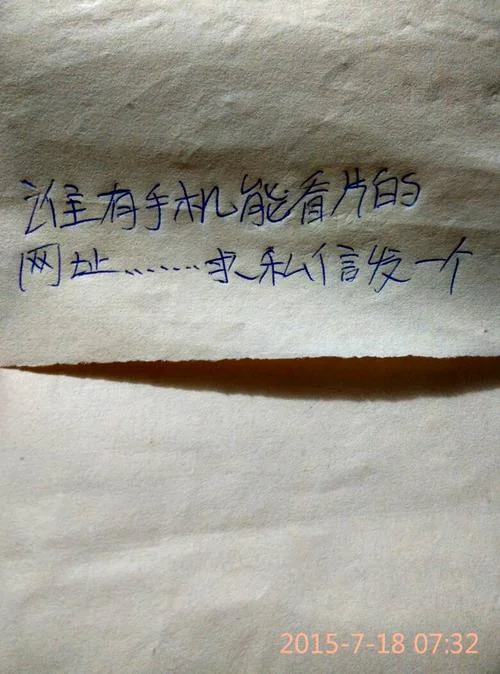 谁有手机能看片的
网址........求私信发一个
2015-7-18 07:32